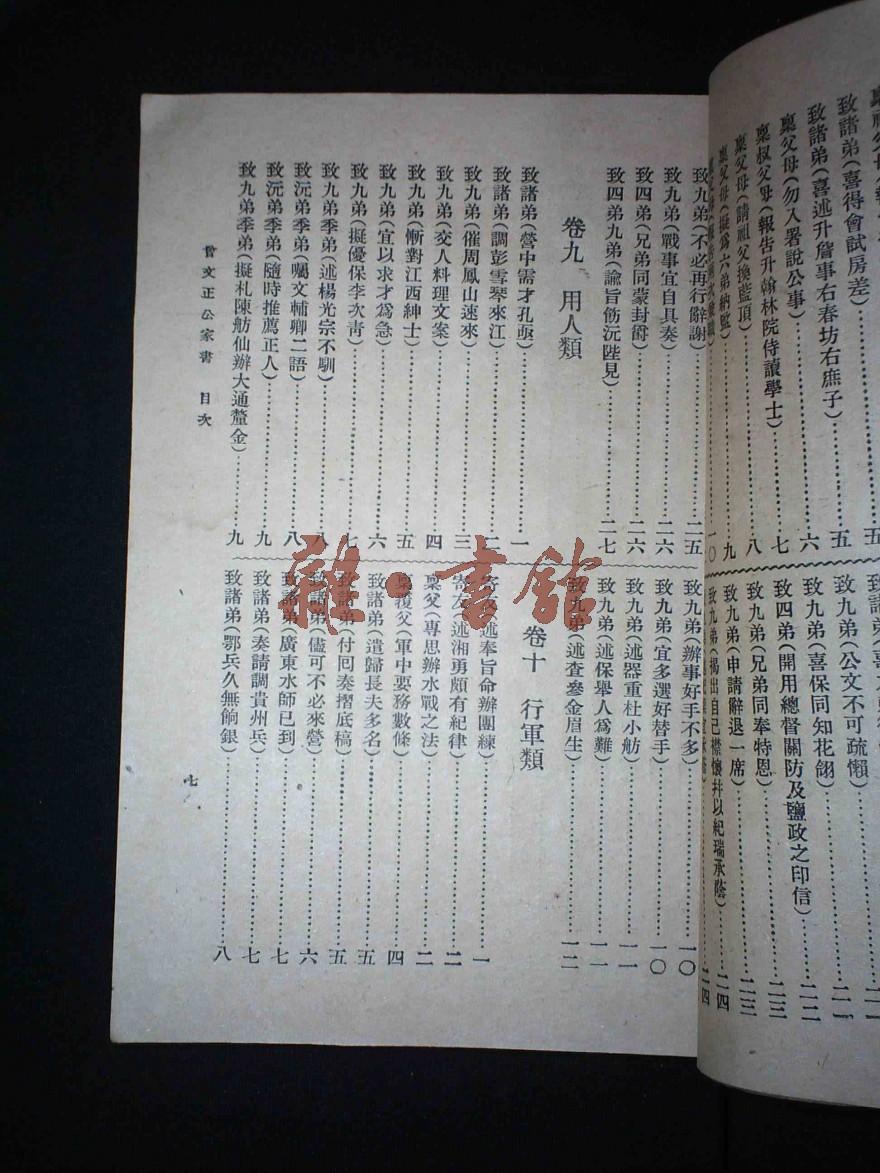 致諸弟(喜得會試房差)
致諸弟(喜述升詹事右春坊右庶子)
稟父母(勿入署說公事)
稟叔父母(報告升翰林院侍讀學士)
稟父母(請祖父換藍頂)
稟父母(擬爲六弟納監)
致九弟(公文不可疏懶)
致九弟(喜保同知花翎)
致四弟(開用總督關防及鹽政之印信)
致九弟(兄弟同奉特恩)
致九弟(申請辭退一席)
致九弟(揭出自己襟懷幷以紀瑞承蔭)
致九弟(不必再行辭謝)二五
致九弟(戰事宜自具奏)二六
致四弟(兄弟同蒙封爵)二六
致四弟九弟(諭旨飭沅陛見)二七
卷九 用人類
致諸弟(營中需才孔亟)一
致諸弟(調彭雪琴來江)二
致九弟(催周鳳山速來)三
致九弟(交人料理文案)四
致九弟(慚對江西紳士)五
致九弟(宜以求才爲急)六
致九弟(擬優保李次靑)七
致九弟季弟(述楊光宗不馴)八
致沅弟季弟(囑文輔卿二語)八
致沅弟季弟(隨時推薦正人)九
致九弟季弟(擬札陳舫仙辦大通釐金)九
致九弟(辦事好手不多)一〇
致九弟(宜多選好替手)一〇
致九弟(述器重杜小舫)一一
致九弟(述保舉人爲難)一一
致九弟(述查參金眉生)一二
卷十 行軍類
述奉旨命辦團練)一
寄左 述湘勇頗有紀律)二
稟父(專思辦水戰之法)二
稟 父(軍中要務數條)四
致諸弟(遣歸長夫多名)五
致諸弟(付囘奏摺底稿)五
致諸弟(儘可不必來營)六
致諸弟(廣東水師已到)七
致諸弟(奏請調貴州兵)七
致諸弟(鄂兵久無餉銀)八
曾文正公家書 目次
七
雜·書館